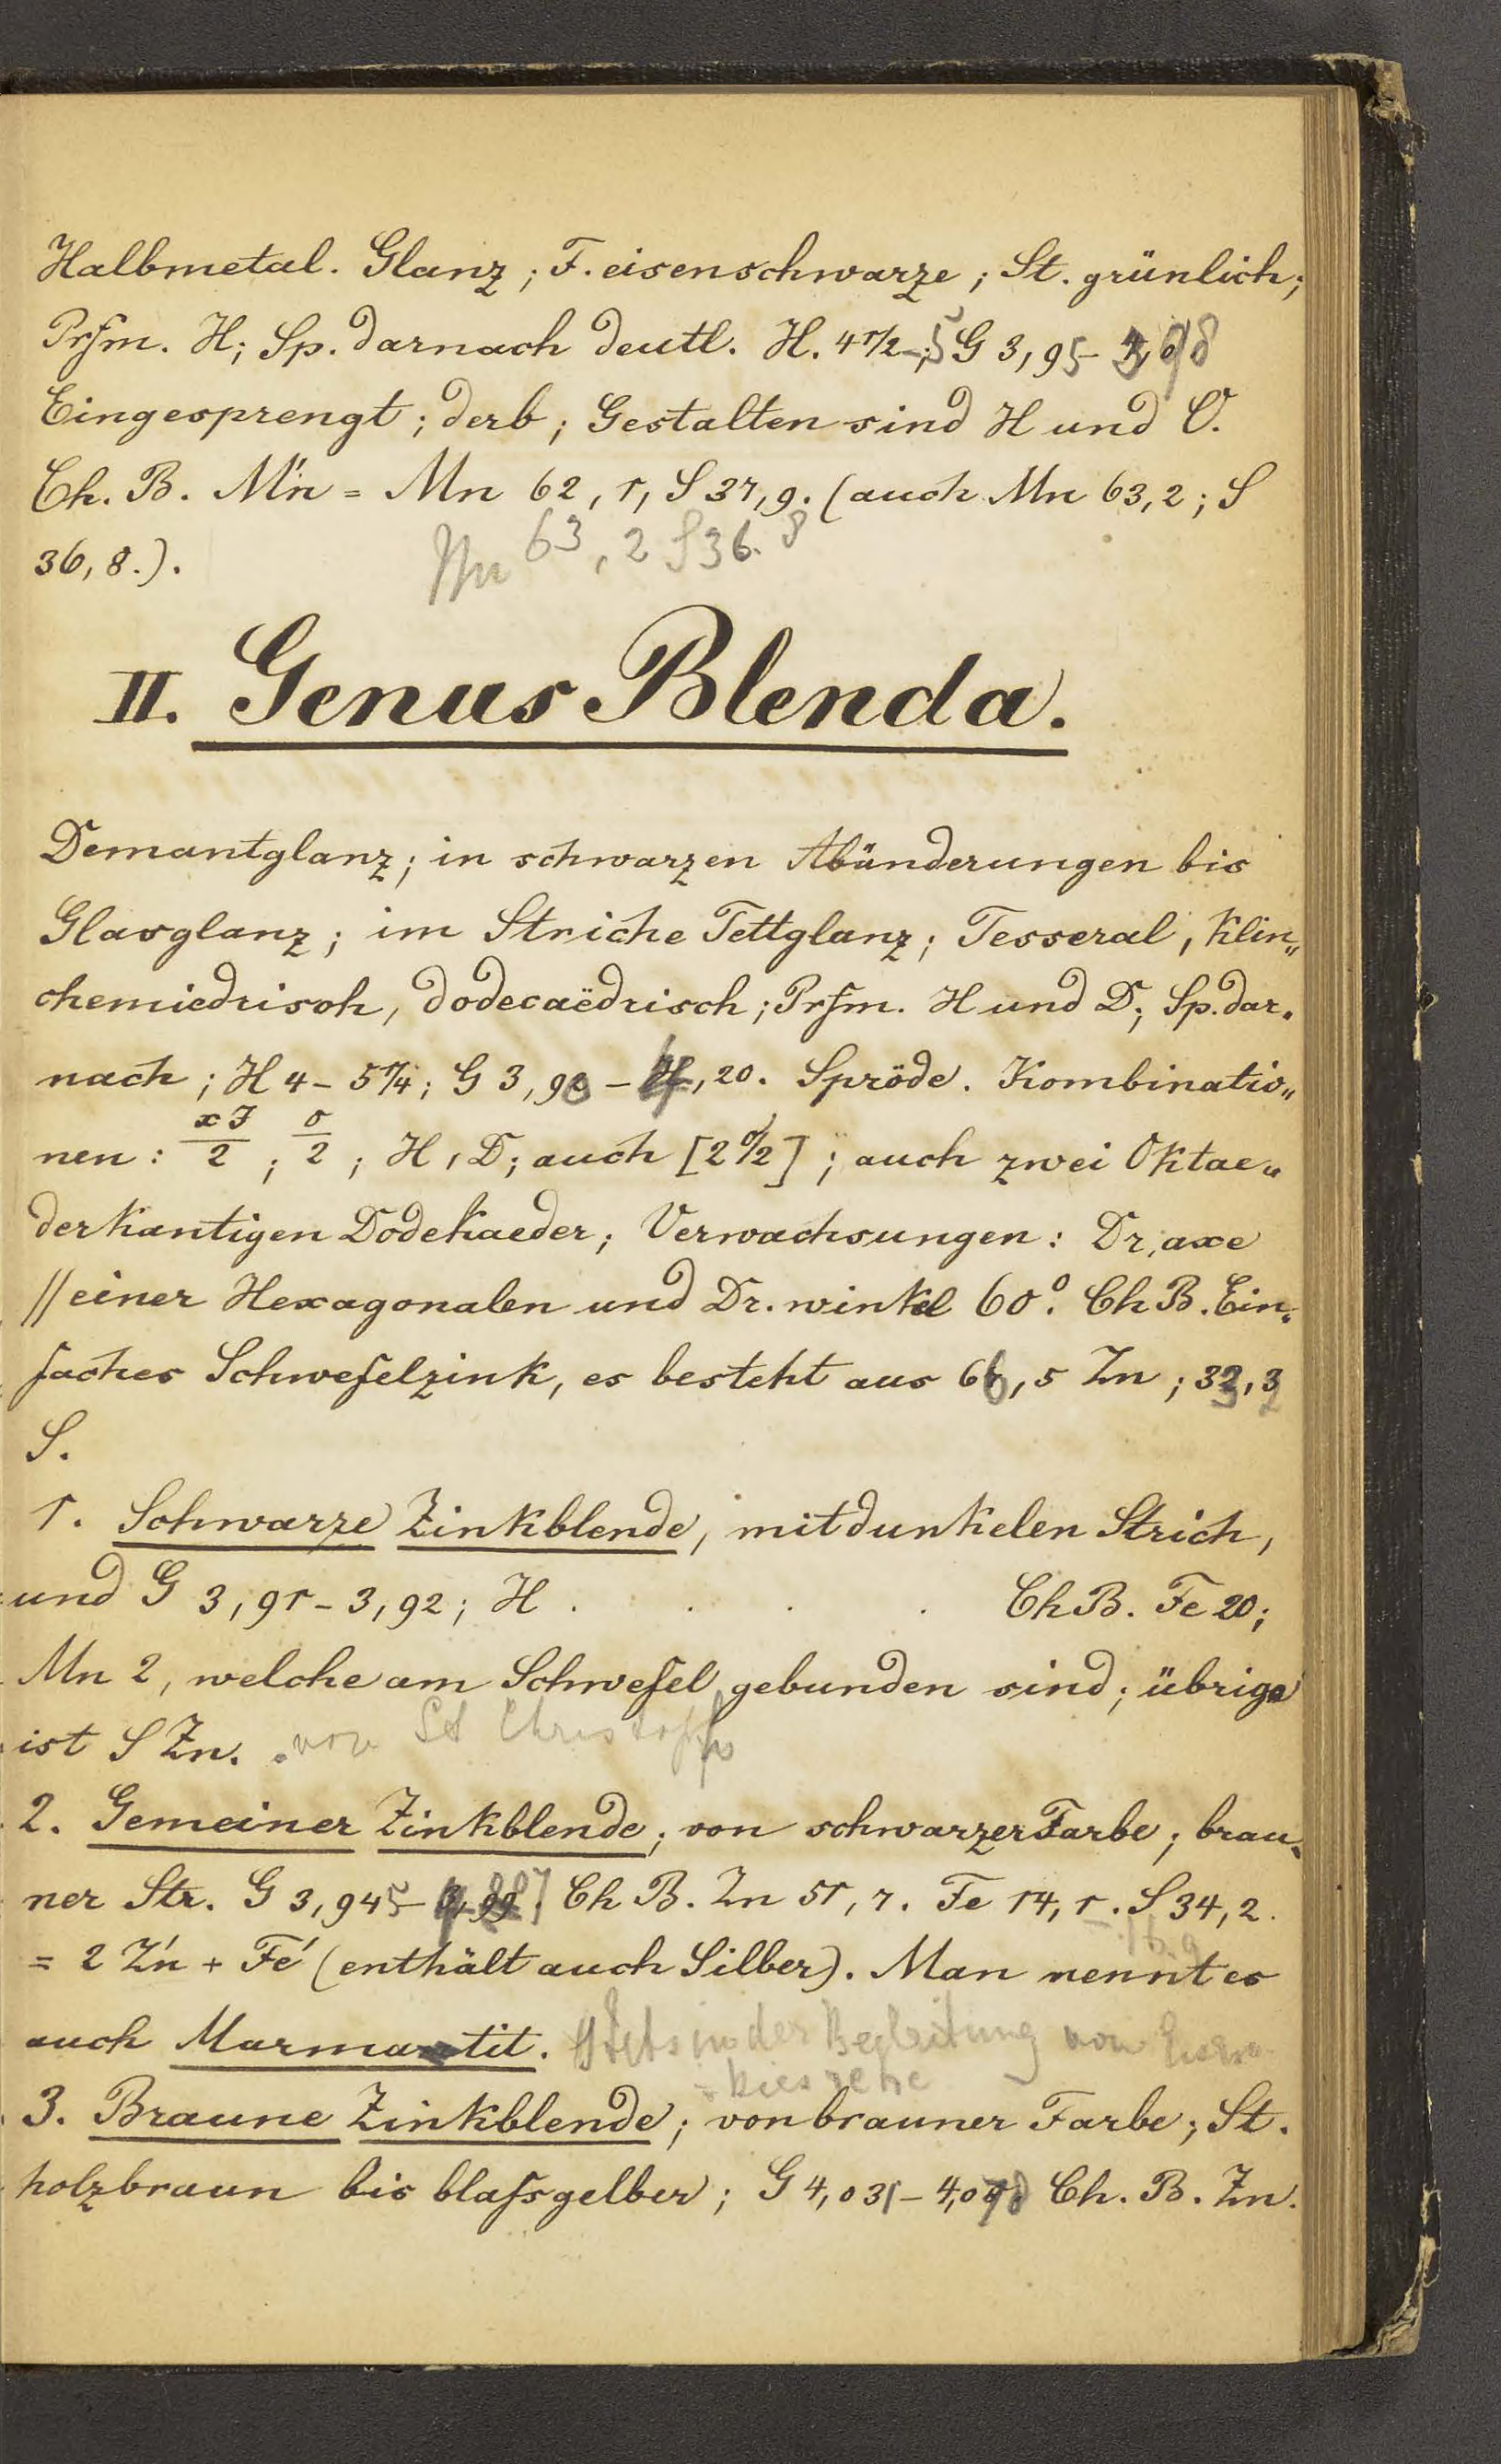 Halbmetal. Glanz; F. eisenschwarze; St. grünlich;
Prſm. H; Sp. darnach deutl. H. 4 1/2-5 G 3,95- 3,98
Eingesprengt; derb; Gestalten sind H und O.
Ch. B. Ḿn = Mn 62,1, S 37,9. (auch Mn 63,2; S
36,8.).
Mn 63,2 S 36.8
II. Genus Blenda.
Demantglanz; in schwarzen Abänderungen bis
Glasglanz; im Striche Fettglanz; Tesseral, klin„
chemiedrisch, dodecaëdrisch; Prſm. H und D; Sp. dar„
nach; H 4 - 5 1/4; G 3,90 - 4,20. Spröde. Kombinatio„
nen: xJ/2; o/2; H, D; auch [2 o/2]; auch zwei Oktae„
derkantigen Dodekaeder; Verwachsungen: Dr. axe
// einer Hexagonalen und Dr. winkel 60°. Ch B. Ein„
faches Schwefelzink, es besteht aus 66,5 Zn; 33,2
S.
1. Schwarze Zinkblende, mit dunkelen Strich,
und G 3,91 - 3,92; H . . . . Ch B. Fe 20;
Mn 2, welche am Schwefel gebunden sind; übrige
ist S Zn. von St Christoph
2. Gemeiner Zinkblende; von schwarzer Farbe; brau„
ner Str. G 3,945 - Ch B. Zn 51,7. Fe 14,1. S 34,2.
= 2 Źn + Fé (enthält auch Silber). Man nennt es
auch Marmatit. Stets in der Begleitung von Eisen
kiesrehe
3. Braune Zinkblende; von brauner Farbe; St.
holzbraun bis blaſsgelber; G 4,031 - 4,078 Ch. B. Zn.